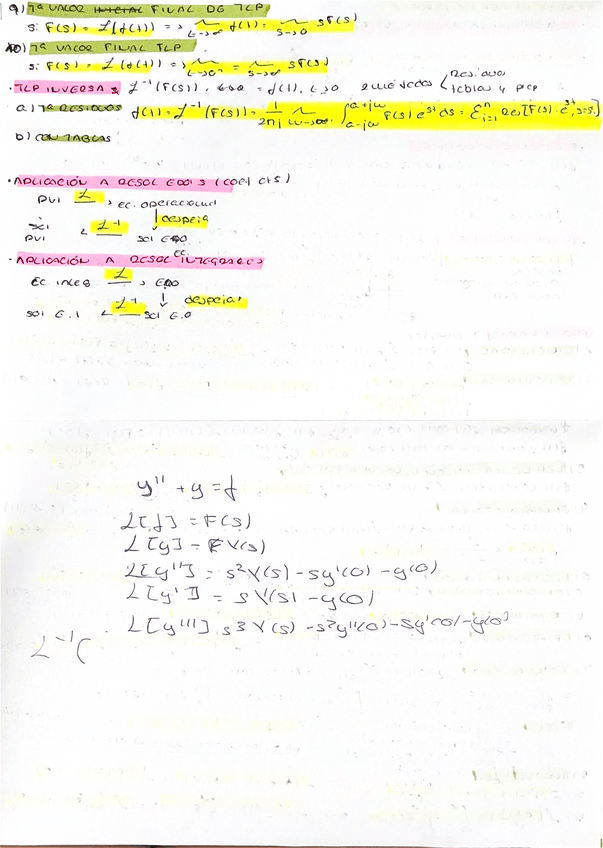 9) Tª VALOR FINAL DE TLP
Si F(s) = L[f(t)] => lim t→∞ f(t) = lim s→0 sF(s)
10) Tª VALOR FINAL TLP
Si F(s) = L(f(t)) => lim t→0⁺ = lim s→∞ sF(s)
· TLP INVERSA L⁻¹(F(s)) = f(t), t>0 2 métodos < Residuos
tablas y prop
a) Tª RESIDUOS f(t) = L⁻¹(F(s)) = 1/2πj lim ω→∞ ∫ a-jω a+jω F(s) e^st ds = Σ i=1 n Res[F(s) · e^st, s=si]
b) CON TABLAS
· APLICACIÓN A RESOL EDOS (coef ctes)
PVI L → ec. operacional
↓ despeja
sol PVI ← L⁻¹ sol EDO
· APLICACIÓN A RESOL EC INTEGRALES
Ec. integ L → EDO
↓ despejar
sol E.I ← L⁻¹ sol E.O
y'' + y = f
L[f] = F(s)
L[y] = Y(s)
L[y''] = s²Y(s) - sy'(0) - y(0)
L[y'] = sY(s) - y(0)
L[y'''] s3 Y(s) - s²y''(0) - sy'(0) - y(0)
L⁻¹(